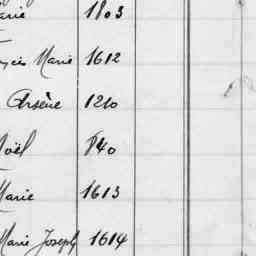 arie 1803
Marie 1612
Arsène 1210
Noël 840
Marie 1613
Marie Joseph 1614